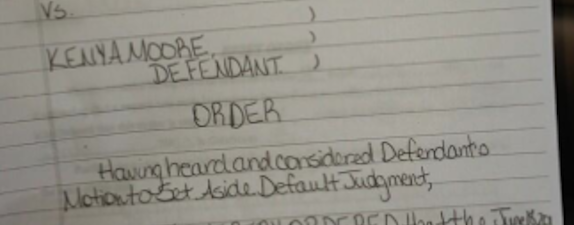 VS. )
)
KENYA MOORE,
DEFENDANT. )
ORDER
Having heard and considered Defendant's
Motion to Set Aside Default Judgment,
ORDERED that the June